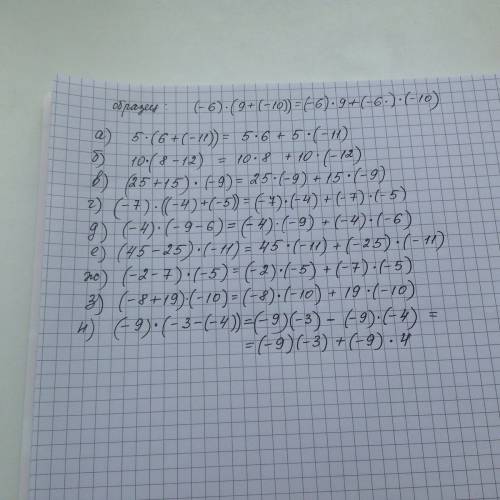 образец: (-6)·(9+(-10))=(-6)·9+(-6·)·(-10)
а) 5·(6+(-11))= 5·6+5·(-11)
б) 10·(8-12) = 10·8 +10·(-12)
в) (25+15)·(-9)=25·(-9)+15·(-9)
г) (-7)·((-4)+(-5))=(-7)·(-4)+(-7)·(-5)
д) (-4)·(-9-6)=(-4)·(-9)+(-4)·(-6)
е) (45-25)·(-11)=45·(-11)+(-25)·(-11)
ж) (-2-7)·(-5)=(-2)·(-5)+(-7)·(-5)
з) (-8+19)·(-10)=(-8)·(-10)+19·(-10)
и) (-9)·(-3-(-4))=(-9)(-3)-(-9)·(-4) =
=(-9)(-3)+(-9)·4